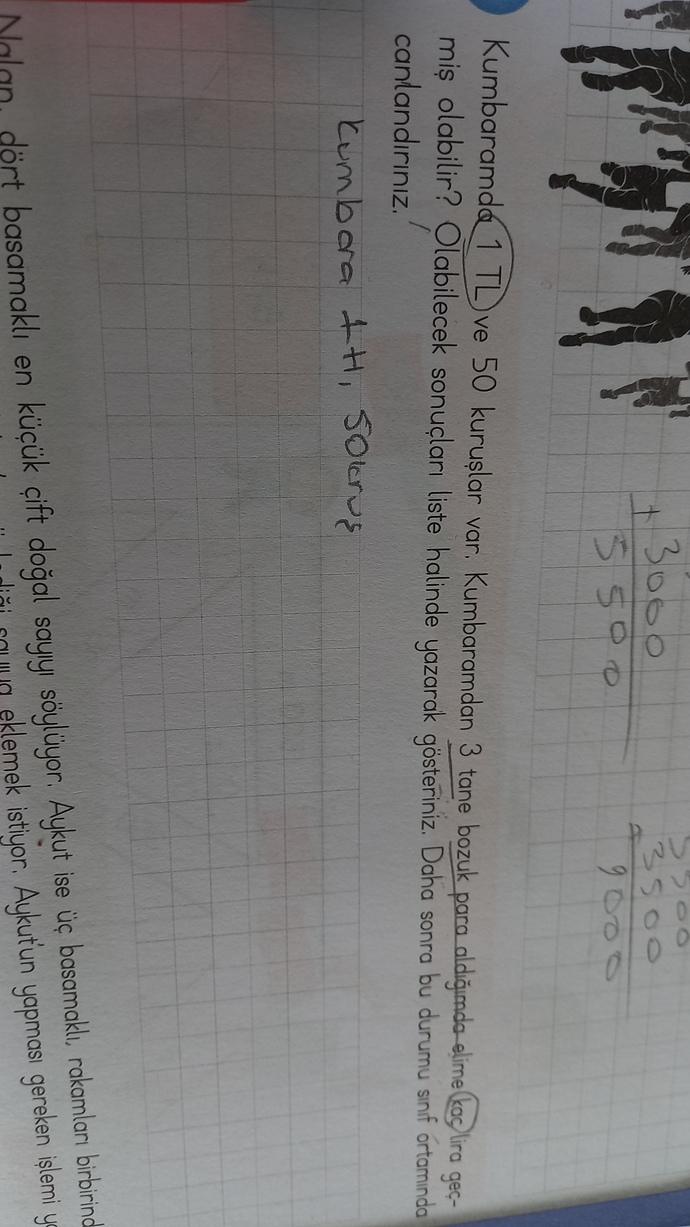 3000
+
5500
5500
+ 3500
9000
Kumbaramda 1 TL ve 50 kuruşlar var. Kumbaramdan 3 tane bozuk para aldığımda elime kaç lira geç-
miş olabilir? Olabilecek sonuçları liste halinde yazarak gösteriniz. Daha sonra bu durumu sınıf ortamında
canlandırınız.
Kumbara 1 tl, 50krus
Nalan, dört basamaklı en küçük çift doğal sayıyı söylüyor. Aykut ise üç basamaklı, rakamları birbirind
sayıya eklemek istiyor. Aykut'un yapması gereken işlemi